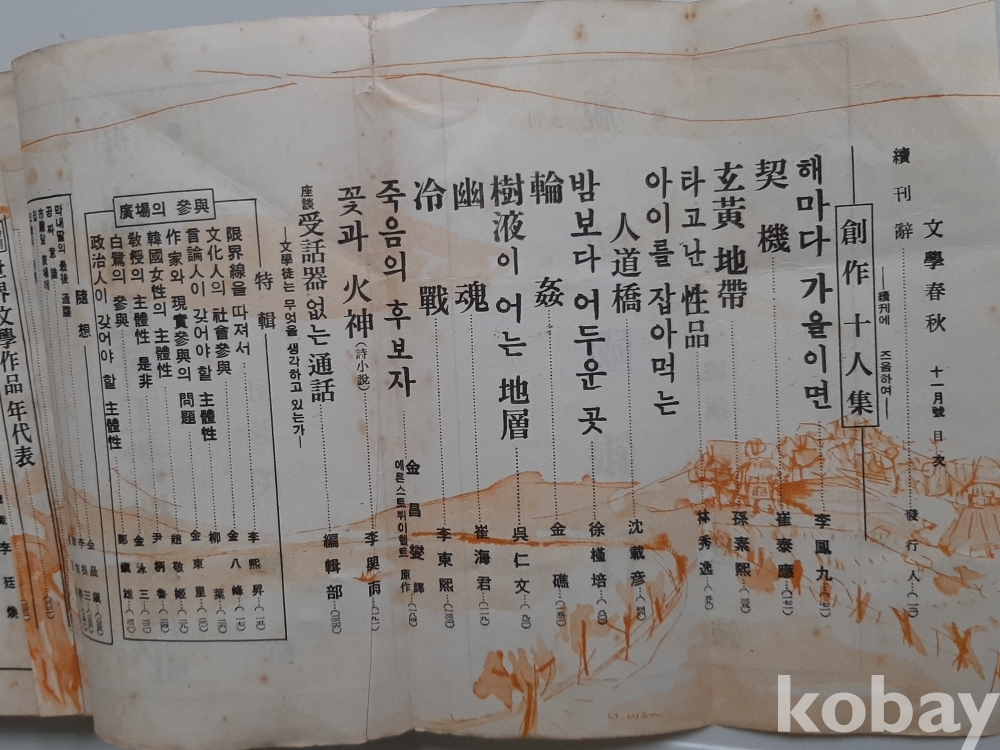 文學春秋 十一月號 目次
續刊辭 發行人
──續刊에 즈음하여──
創作十人集
해마다 가을이면 李鳳九
契機 崔泰應
玄黃地帶 孫素熙
타고난 性品 林秀逸
아이를 잡아먹는 人道橋 沈載彦
밤보다 어두운 곳 徐槿培
輪姦 金礁
樹液이 어는 地層 吳仁文
幽魂 崔海君
冷戰 李東熙
죽음의 후보자 金昌燮 譯
原作
꽃과 火神(詩小說) 李興雨
座談 受話器 없는 通話 編輯部
──文學徒는 무엇을 생각하고 있는가──
特輯
廣場의 參與
限界線을 따져서 李熙昇
文化人의 社會參與 金八峰
言論人이 갖어야 할 主體性 柳葉
作家와 現實參與의 問題 金東里
韓國女性의 主體性 趙敬姬
敎授의 主體性 是非 尹柄魯
白鷺의 參與 金泳三
政治人이 갖어야 할 主體性 鄭
隨想
막내딸의 最後
世界文學作品年代表 李廷
Lee wan
kobay